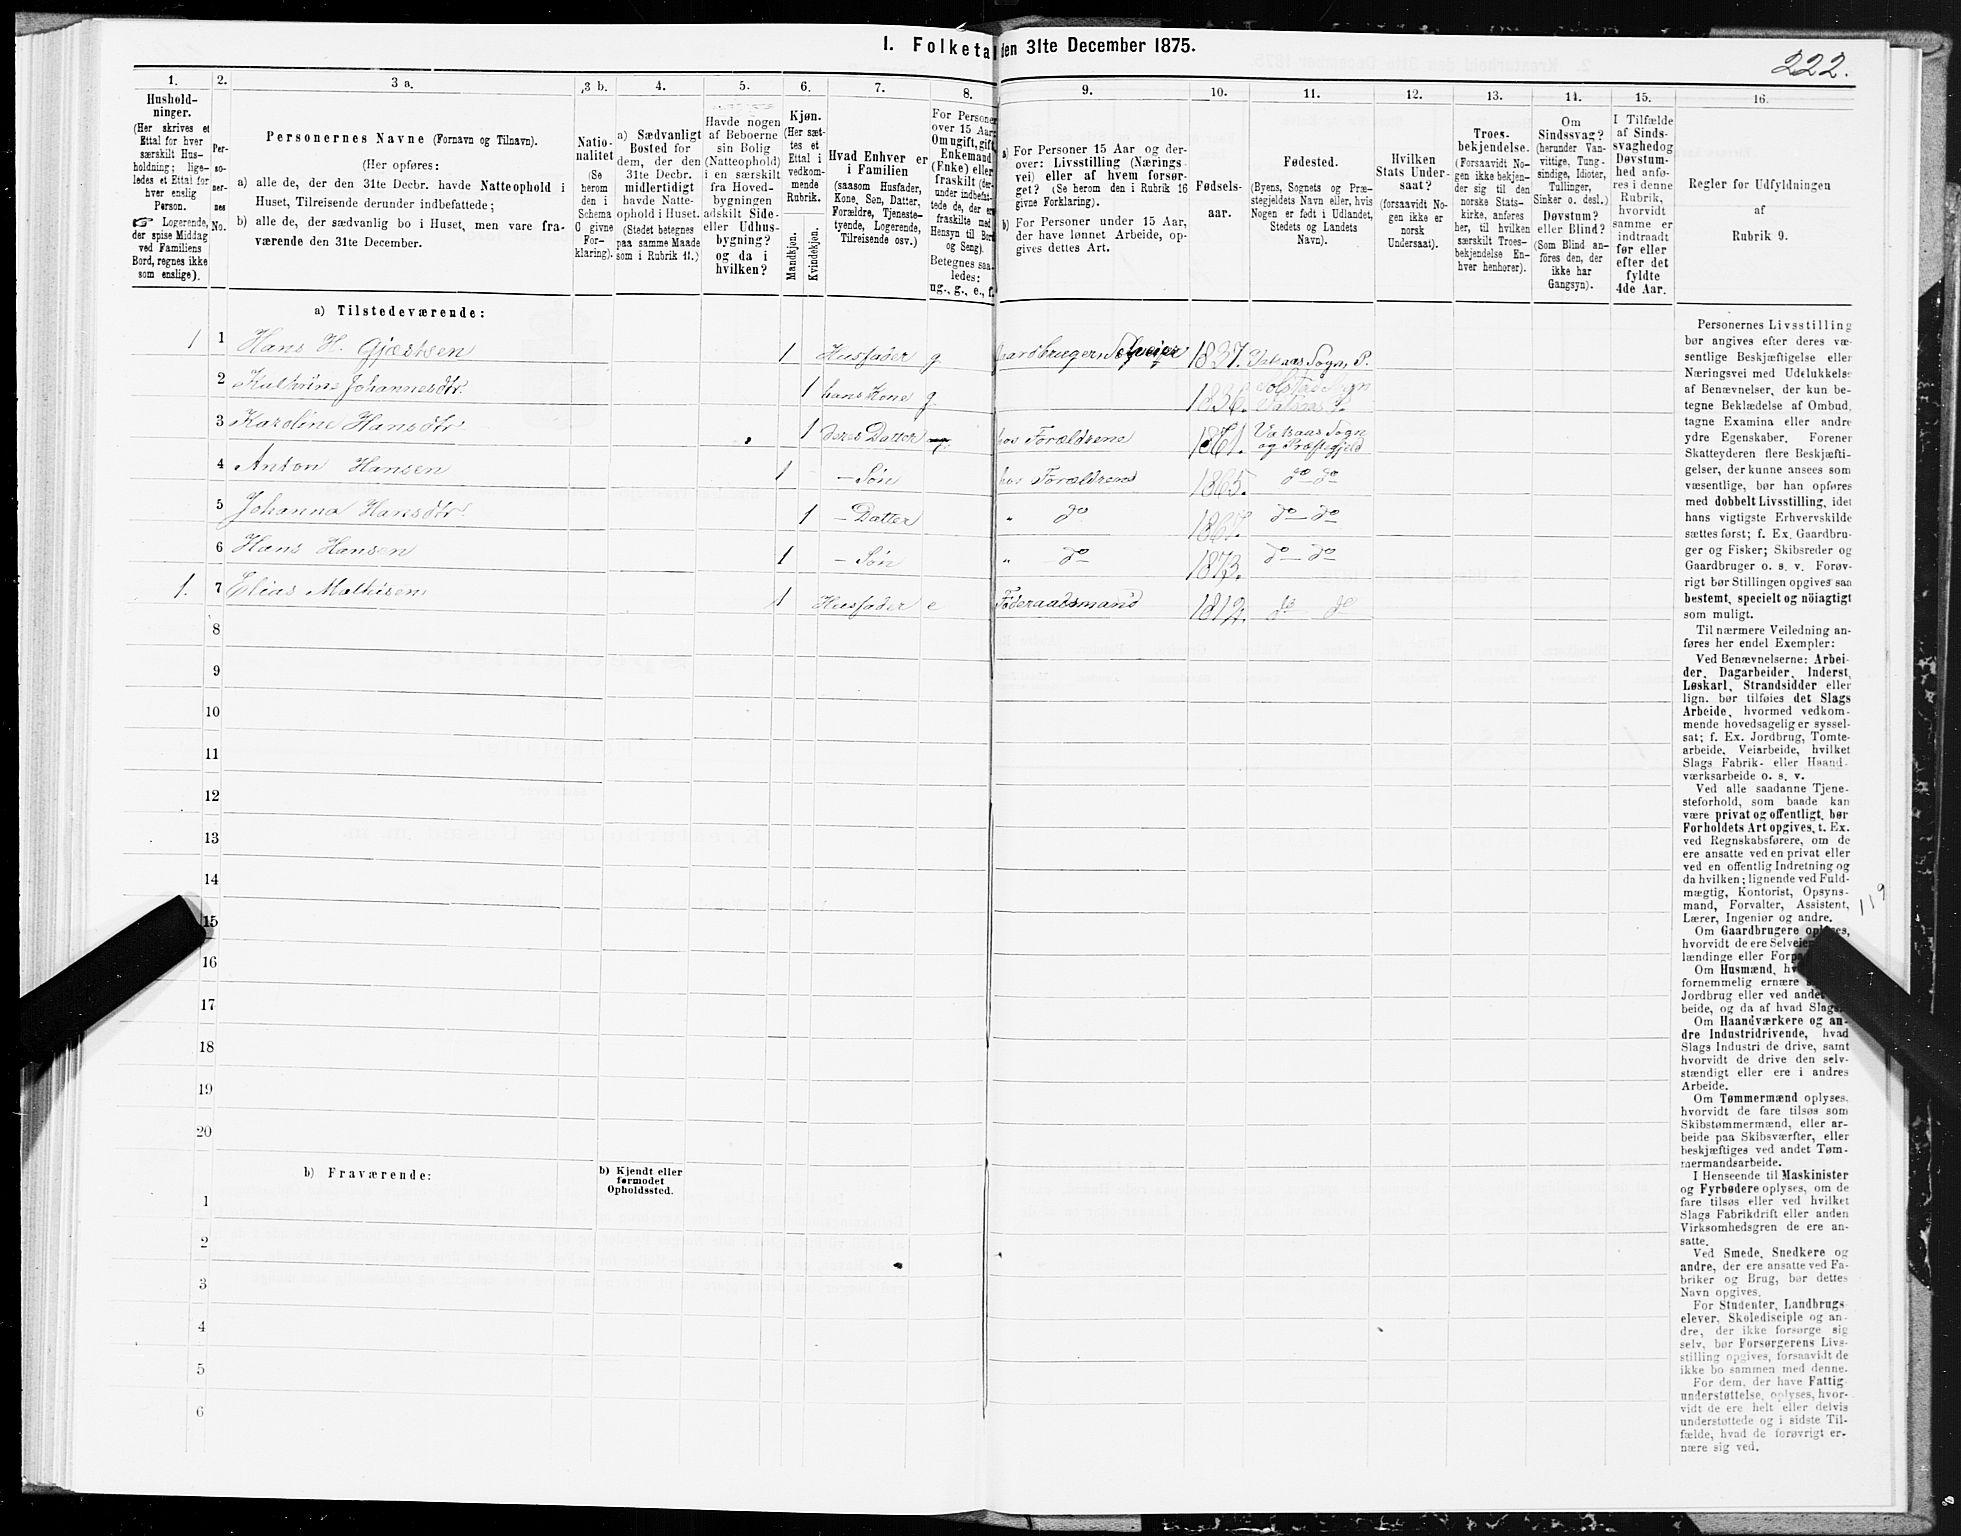 I. Folketal den 31te December 1875.
222.
1.
Hushold-
ninger.
(Her skrives et
Ettal for hver
særskilt Hus-
holdning; lige-
ledes et Ettal for
hver enslig
Person.
☞ Logerende,
der spise Middag
ved Familiens
Bord, regnes ikke
som enslige).
2.
Per-
so-
ner-
nes
No.
3 a.
Personernes Navne (Fornavn og Tilnavn).
(Her opføres:
a) alle de, der den 31te Decbr. havde Natteophold i
Huset, Tilreisende derunder indbefattede;
b) alle de, der sædvanlig bo i Huset, men vare fra-
værende den 31te December.
3 b.
Natio-
nalitet
(Se
herom
den i
Schema
C givne
For-
klaring).
4.
a) Sædvanligt
Bosted for
dem, der den
31te Decbr.
midlertidigt
havde Natte-
ophold i Huset.
(Stedet betegnes
paa samme Maade
som i Rubrik 11.)
5.
Havde nogen
af Beboerne
sin Bolig
(Natteophold)
i en særskilt
fra Hoved-
bygningen
adskilt Side-
eller Udhus-
bygning?
og da i
hvilken?
6.
Kjøn.
(Her sæt-
tes et
Ettal i
vedkom-
mende
Rubrik.
Mandkjøn.
Kvindekjøn.
7.
Hvad Enhver er
i Familien
(saasom Husfader,
Kone, Søn, Datter,
Forældre, Tjeneste-
tyende, Logerende,
Tilreisende osv.)
8.
For Personer
over 15 Aar:
Om ugift, gift,
Enkemand
(Enke) eller
fraskilt (der-
under indbefat-
tede de, der ere
fraskilte med
Hensyn til Bord
og Seng).
Betegnes saa-
ledes:
ug., g., e., f.
9.
a) For Personer 15 Aar og der-
over: Livsstilling (Nærings-
vei) eller af hvem forsør-
get? (Se herom den i Rubrik 16
givne Forklaring).
b) For Personer under 15 Aar,
der have lønnet Arbeide, op-
gives dettes Art.
10.
Fødsels-
aar.
11.
Fødested.
(Byens, Sognets og Præ-
stegjeldets Navn eller, hvis
Nogen er født i Udlandet,
Stedets og Landets
Navn).
12.
Hvilken
Stats Under-
saat?
(forsaavidt No-
gen ikke er
norsk
Undersaat).
13.
Troes-
bekjendelse.
(Forsaavidt No-
gen ikke bekjen-
der sig til den
norske Stats-
kirke, anføres
her, til hvilken
særskilt Troes-
bekjendelse En-
hver henhører).
14.
Om
Sindssvag?
(herunder Van-
vittige, Tung-
sindige, Idioter,
Tullinger,
Sinker o. desl.)
Døvstum?
eller Blind?
(Som Blind an-
føres den, der
ikke har
Gangsyn).
15.
I Tilfælde
af Sinds-
svaghedog
Døvstum-
hed anfø-
res i denne
Rubrik,
hvorvidt
samme er
indtraadt
før eller
efter det
fyldte
4de Aar.
16.
Regler for Udfyldningen
af
Rubrik 9.
a) Tilstedeværende:
1 1 Hans H. Gjertsen 1 Husfader g. Gaardbruger, Selveier 1837. Valsaas Sogn, P.
2 Kathrine Johannesdtr. 1 hans Kone g. 1836. Sogn Valsaas P.
3 Karoline Hansdtr 1 deres Datter hos Forældrene 1861. Valsaas Sogn
og Præstegjeld
4 Anton Hansen 1 — Søn hos Forældrene 1865. do do
5 Johanna Hansdtr. 1 — Datter " do 1867. do — do
6 Hans Hansen 1 — Søn " do 1873. do — do
1. 7 Elias Mathisen 1 Husfader e Føderaadsmand 1812. do do
8
9
10
11
12
13
14
15
16
17
18
19
20
b) Fraværende:
b) Kjendt eller
formodet
Opholdssted.
1
2
3
4
5
6
Personernes Livsstilling
bør angives efter deres væ-
sentlige Beskjæftigelse eller
Næringsvei med Udelukkelse
af Benævnelser, der kun be-
tegne Beklædelse af Ombud,
tagne Examina eller andre
ydre Egenskaber. Forener
Skatteyderen flere Beskjæfti-
gelser, der kunne ansees som
væsentlige, bør han opføres
med dobbelt Livsstilling, idet
hans vigtigste Erhvervskilde
sættes først; f. Ex. Gaardbru-
ger og Fisker; Skibsreder og
Gaardbruger o. s. v. Forøv-
rigt bør Stillingen opgives saa
bestemt, specielt og nöiagtigt
som muligt.
Til nærmere Veiledning an-
føres her endel Exempler:
Ved Benævnelserne: Arbei-
der, Dagarbeider, Inderst,
Løskarl, Strandsidder eller
lign. bør tilføies det Slags
Arbeide, hvormed vedkom-
mende hovedsagelig er syssel-
sat; f. Ex. Jordbrug, Tomte-
arbeide, Veiarbeide, hvilket
Slags Fabrik- eller Haand-
værksarbeide o. s. v.
Ved alle saadanne Tjene-
steforhold, som baade kan
være privat og offentligt, bør
Forholdets Art opgives, t. Ex.
ved Regnskabsførere, om de
ere ansatte ved en privat eller
ved en offentlig Indretning og
da hvilken; lignende ved Fuld-
mægtig, Kontorist, Opsyns-
mand, Forvalter, Assistent,
Lærer, Ingeniør og andre.
119
Om Gaardbrugere oplyses,
hvorvidt de ere Selveiere,
lændinge eller
Om Husmænd,
fornemmelig ernære
Jordbrug eller ved andet
beide, og da af hvad Slags.
Om Haandværkere og an-
dre Industridrivende, hvad
Slags Industri de drive, samt
hvorvidt de drive den selv-
stændigt eller ere i andres
Arbeide.
Om Tømmermænd oplyses,
hvorvidt de fare tilsøs som
Skibstømmermænd, eller ar-
beide paa Skibsværfter, eller
beskjæftiges ved andet Tøm-
mermandsarbeide.
I Henseende til Maskinister
og Fyrbødere oplyses, om de
fare tilsøs eller ved hvilket
Slags Fabrikdrift eller anden
Virksomhedsgren de ere an-
satte.
Ved Smede, Snedkere og
andre, der ere ansatte ved Fa-
briker og Brug, bør dettes
Navn opgives.
For Studenter, Landbrugs-
elever, Skoledisciple og an-
dre, der ikke forsørge sig
selv, bør Forsørgerens Livs-
stilling opgives, forsaavidt de
ikke bo sammen med denne.
For dem, der have Fattig-
understøttelse, oplyses, hvor-
vidt de ere helt eller delvis
understøttede og i sidste Til-
fælde, hvad de forøvrigt er-
nære sig ved.